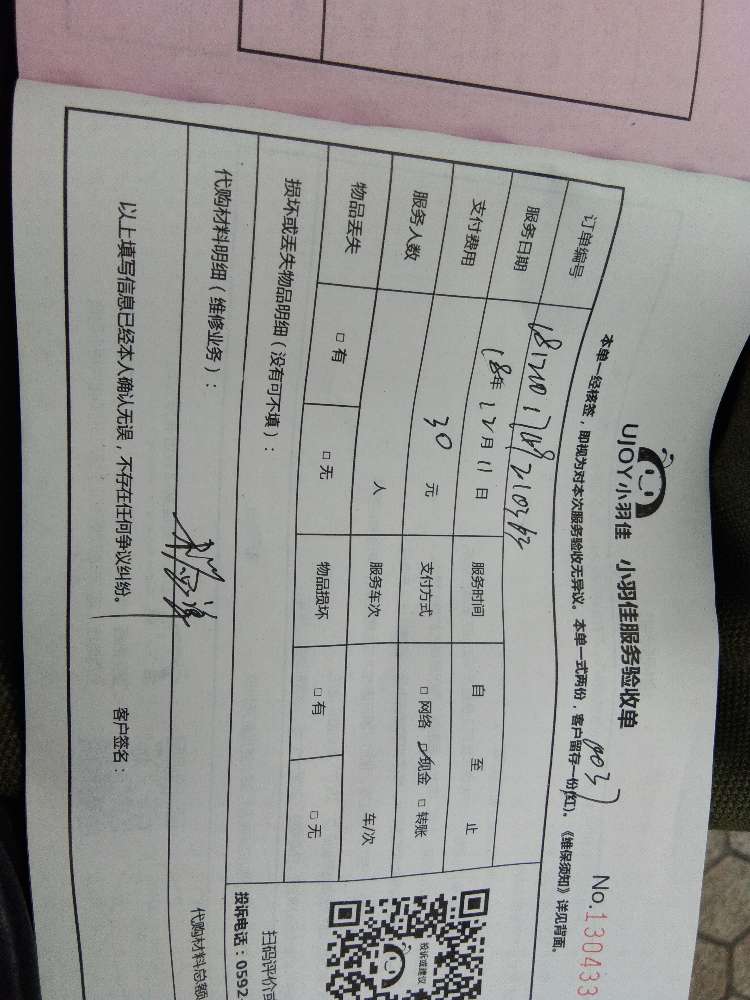 UJOY小羽佳 小羽佳服务验收单
No.130433
本单一经核签，即视为对本次服务验收无异议。本单一式两份，客户留存一份(红)。《维保须知》详见背面。
订单编号
服务日期 18年12月11日 服务时间 自 至 止
支付费用 30元 支付方式 □网络 ☑现金 □转账
服务人数 人 服务车次 车/次
物品丢失 □有 □无 物品损坏 □有 □无
损坏或丢失物品明细（没有可不填）：
代购材料明细（维修业务）：
代购材料总额
以上填写信息已经本人确认无误，不存在任何争议纠纷。
客户签名：
投诉或建议
扫码评价或
投诉电话：0592